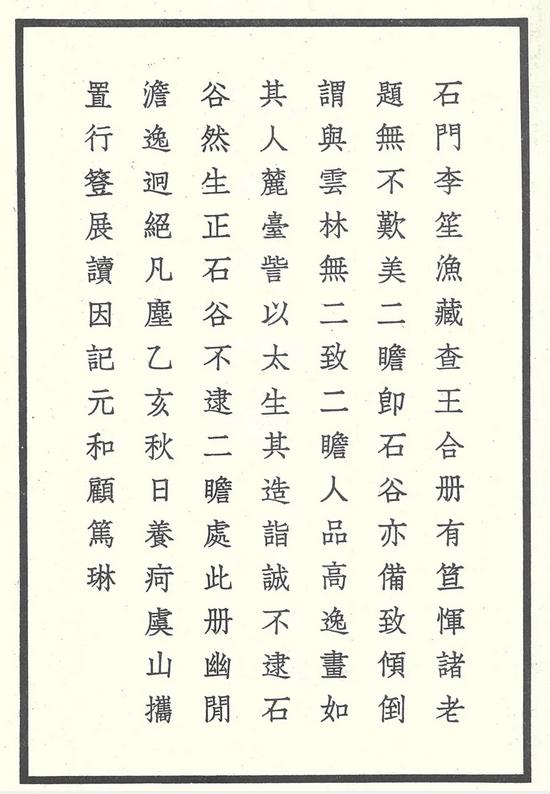 石門李笙漁藏查王合册有笪惲諸老
題無不歎美二瞻卽石谷亦備致傾倒
謂與雲林無二致二瞻人品高逸畫如
其人麓臺訾以太生其造詣誠不逮石
谷然生正石谷不逮二瞻處此册幽閒
澹逸迥絕凡塵乙亥秋日養疴虞山攜
置行簦展讀因記元和顧篤琳